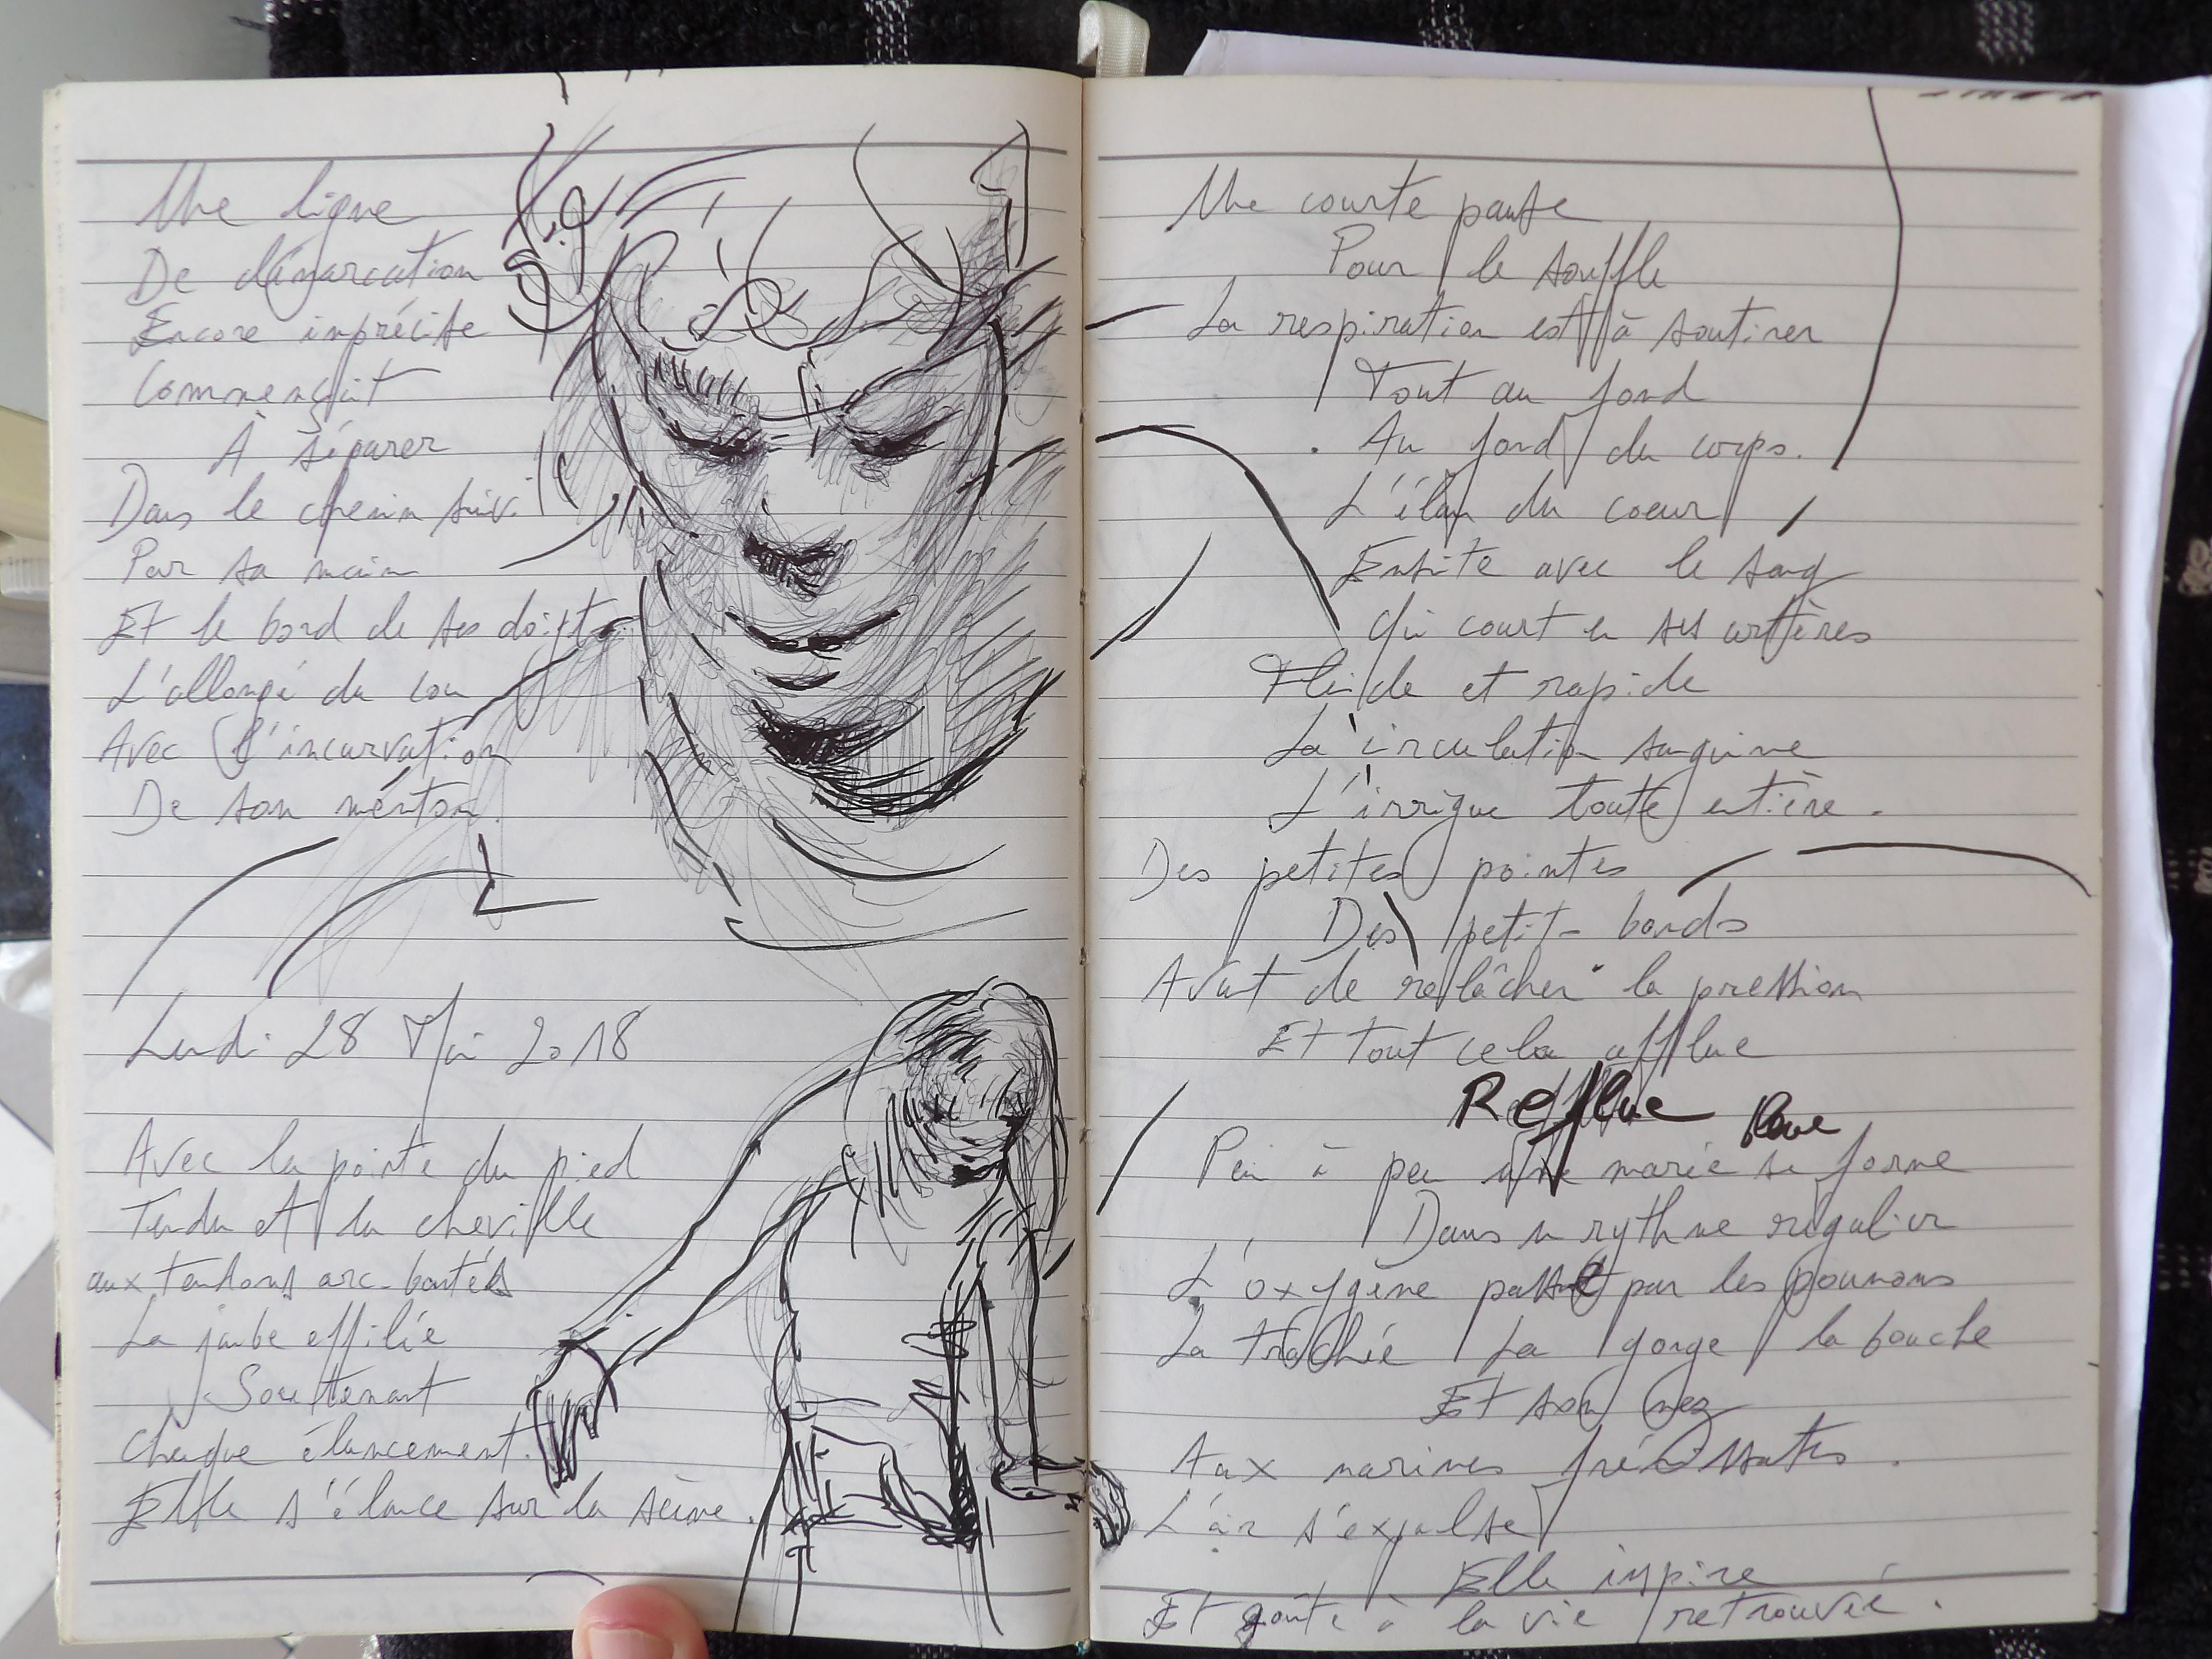 Une ligne
De démarcation
Encore imprécise
Commençait
À séparer
Dans le chemin suivi
Par sa main
Et le bord de ses doigts
L'allongé du cou
Avec l'incurvation
De son menton.
Lundi 28 Mai 2018
Avec la pointe du pied
Tendu et la cheville
aux tendons arc-boutés
La jambe effilée
Soutenant
Chaque élancement.
Elle s'élance sur la scène.
Une courte pause
Pour le souffle
La respiration est à soutirer
Tout au fond
Au fond du corps.
L'élan du coeur
Ensuite avec le sang
Qui court en ses artères
Fluide et rapide
La circulation sanguine
L'irrigue toute entière.
Des petites pointes
Des petits bonds
Avant de relâcher la pression
Et tout cela afflue
Reflue
Peu à peu une marée se forme
Dans un rythme régulier
L'oxygène passe par les poumons
La trachée La gorge la bouche
Et son nez
Aux narines frémissantes.
L'air s'expulse
Elle inspire
Et goûte à la vie retrouvée.